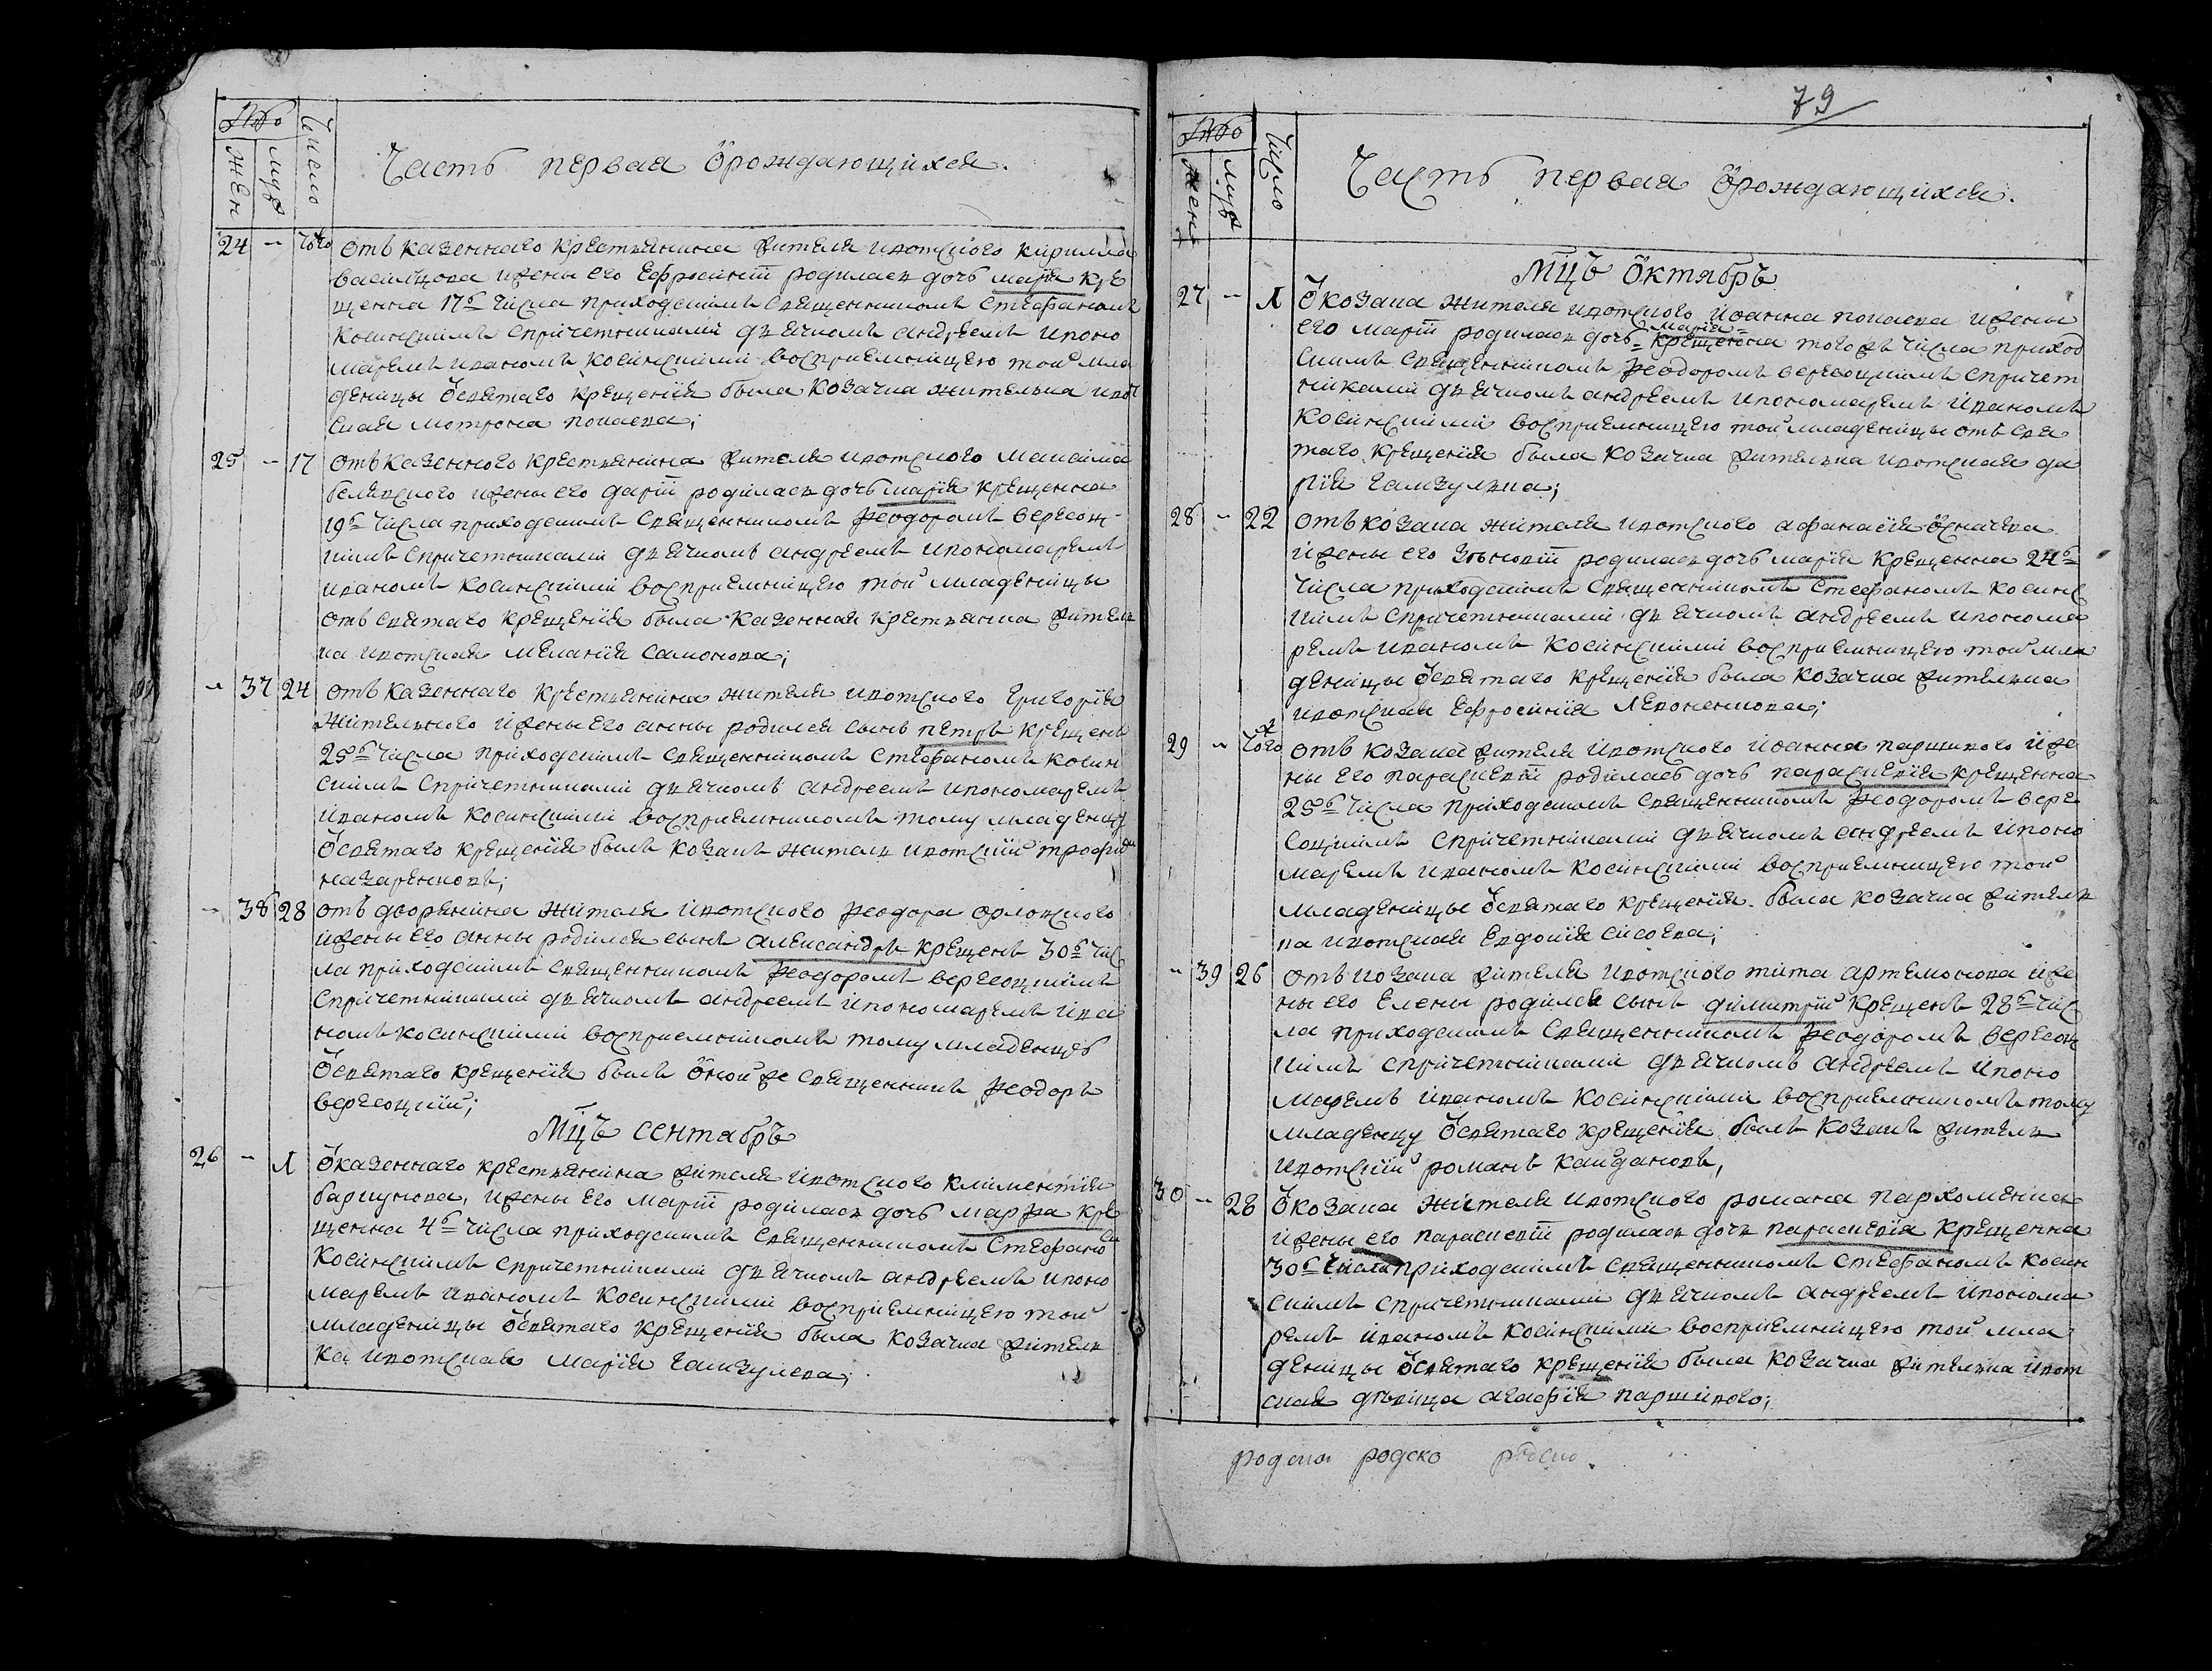 Число
жен
муж
Часть первая ѿ рождающихся.
24 - того отъ казеннаго крестьянина жителя ивотского кирилла
васильцова ижены его Ефросиніи родилась дочь марія кре
щенна 17г числа приходскимъ священникомъ Стефаномъ
косинскимъ спричетниками дьячкомъ андреемъ ипоно
маремъ иваномъ косинскими восприемницею той мла
деницы ѿ святаго крещенія была козачка жителька ивот
ская мотрона попаева;
25 - 17 отъ казенного крестьянина жителя ивотского максима
белявского ижены его даріи родилась дочь марія крещенна
19г числа приходскимъ священникомъ Феодоромъ вересоц
кимъ спричетниками дьячкомъ андреемъ ипономаремъ
иваномъ косинскими восприемницею той младеницы
отъ святаго крещенія была казенная крестьянка жителъ
ка ивотская меланія самонова;
- 37 24 отъ казеннаго крестьянина жителя ивотского Григорія
жительного ижены его анны родился сынъ петръ крещенъ
25г числа приходскимъ священникомъ Стефаномъ косин
скимъ спричетниками дьячкомъ андреемъ ипономаремъ
иваномъ косинскими восприемникомъ тому младенцу
ѿ святаго крещенія былъ козакъ житель ивотскій трофимъ
назаренковъ;
- 38 28 отъ дворянина жителя ивотского Феодора орловского
ижены его анны родился сынъ александръ крещенъ 30г чис
ла приходскимъ священникомъ Феодоромъ вересоцкимъ
спричетниками дьячкомъ андреемъ ипономаремъ ива
номъ косинскими восприемникомъ тому младенцеву
ѿ святаго крещенія былъ ѿной же священникъ Феодоръ
вересоцкій;
Мцъ сентябръ
26 - 1 ѿ казеннаго крестьянина жителя ивотского климентія
ижены его маріи родилась дочь марфа кре
щенна 4г числа приходскимъ священникомъ Стефаномъ
косинскимъ спричетниками дьячкомъ андреемъ ипоно
маремъ иваномъ косинскими восприемницею той
младеницы ѿ святаго крещенія была козачка жителъ
ка ивотская марія гамзулева;
79
Число
жен
муж
Часть первая ѿ рождающихся.
Мцъ ѿктябръ
27 - 1 ѿ козака жителя ивотского иоанна попаева ижены
его маріи родилась дочь = марія = крещенна того жъ числа приход
скимъ священникомъ Феодоромъ вересоцкимъ спричет
никами дьячкомъ андреемъ ипономаремъ иваномъ
косинскими восприемницею той младеницы отъ свя
таго крещенія была козачка жителька ивотская да
рія гамзулева;
28 - 22 отъ козака жителя ивотского афанасія ѿсмачева
ижены его зѣновіи родилась дочь марія крещенна 24г
числа приходскимъ священникомъ Стефаномъ косинс
кимъ спричетниками дьячкомъ андреемъ ипонома
ремъ иваномъ косинскими восприемницею той мла
деницы ѿ святаго крещенія была козачка жителька
ивотская Ефросинія левоненкова;
29 - того отъ козака жителя ивотского иоанна паршикого иже
ны его параскевіи родилась дочь параскевія крещенна
25г числа приходскимъ священникомъ Феодоромъ вере
соцкимъ спричетниками дьячкомъ андреемъ ипоно
маремъ иваномъ косинскими восприемницею той
младеницы ѿ святаго крещенія была козачка жителъ
ка ивотская Евдокія сисоева;
- 39 26 отъ козака жителя ивотского тита артемонова иже
ны его Елены родился сынъ димитрій крещенъ 28г чис
ла приходскимъ священникомъ Феодоромъ вересоц
кимъ спричетниками дьячкомъ андреемъ ипоно
маремъ иваномъ косинскими восприемникомъ тому
младенцу ѿ святаго крещенія былъ козакъ житель
ивотскій романъ кайдановъ,
30 - 28 ѿ козака жителя ивотского романа пархоменка
ижены его параскевіи родилась дочь параскевія крещенна
30г числа приходскимъ священникомъ Стефаномъ косин
скимъ спричетниками дьячкомъ андреемъ ипонома
ремъ иваномъ косинскими восприемницею той мла
деницы ѿ святаго крещенія была козачка жителька ивот
ская дѣвица агафія паршикого;
родско родско